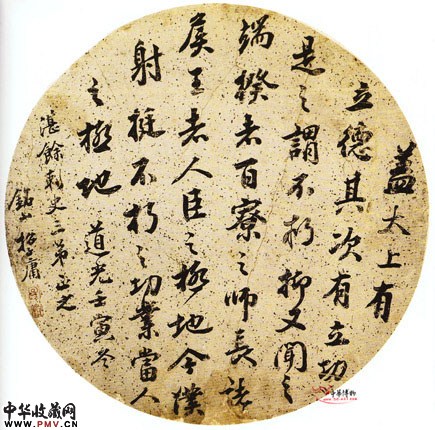 蓋大上有
立德其次有立功
是之謂不朽抑又聞之
端揆者百寮之師長諸
矦王者人臣之極地今僕
射挺不朽之功業當人
之極地 道光壬寅冬
湛餘刺史二弟正之
中华收藏网
www.PMV.CN